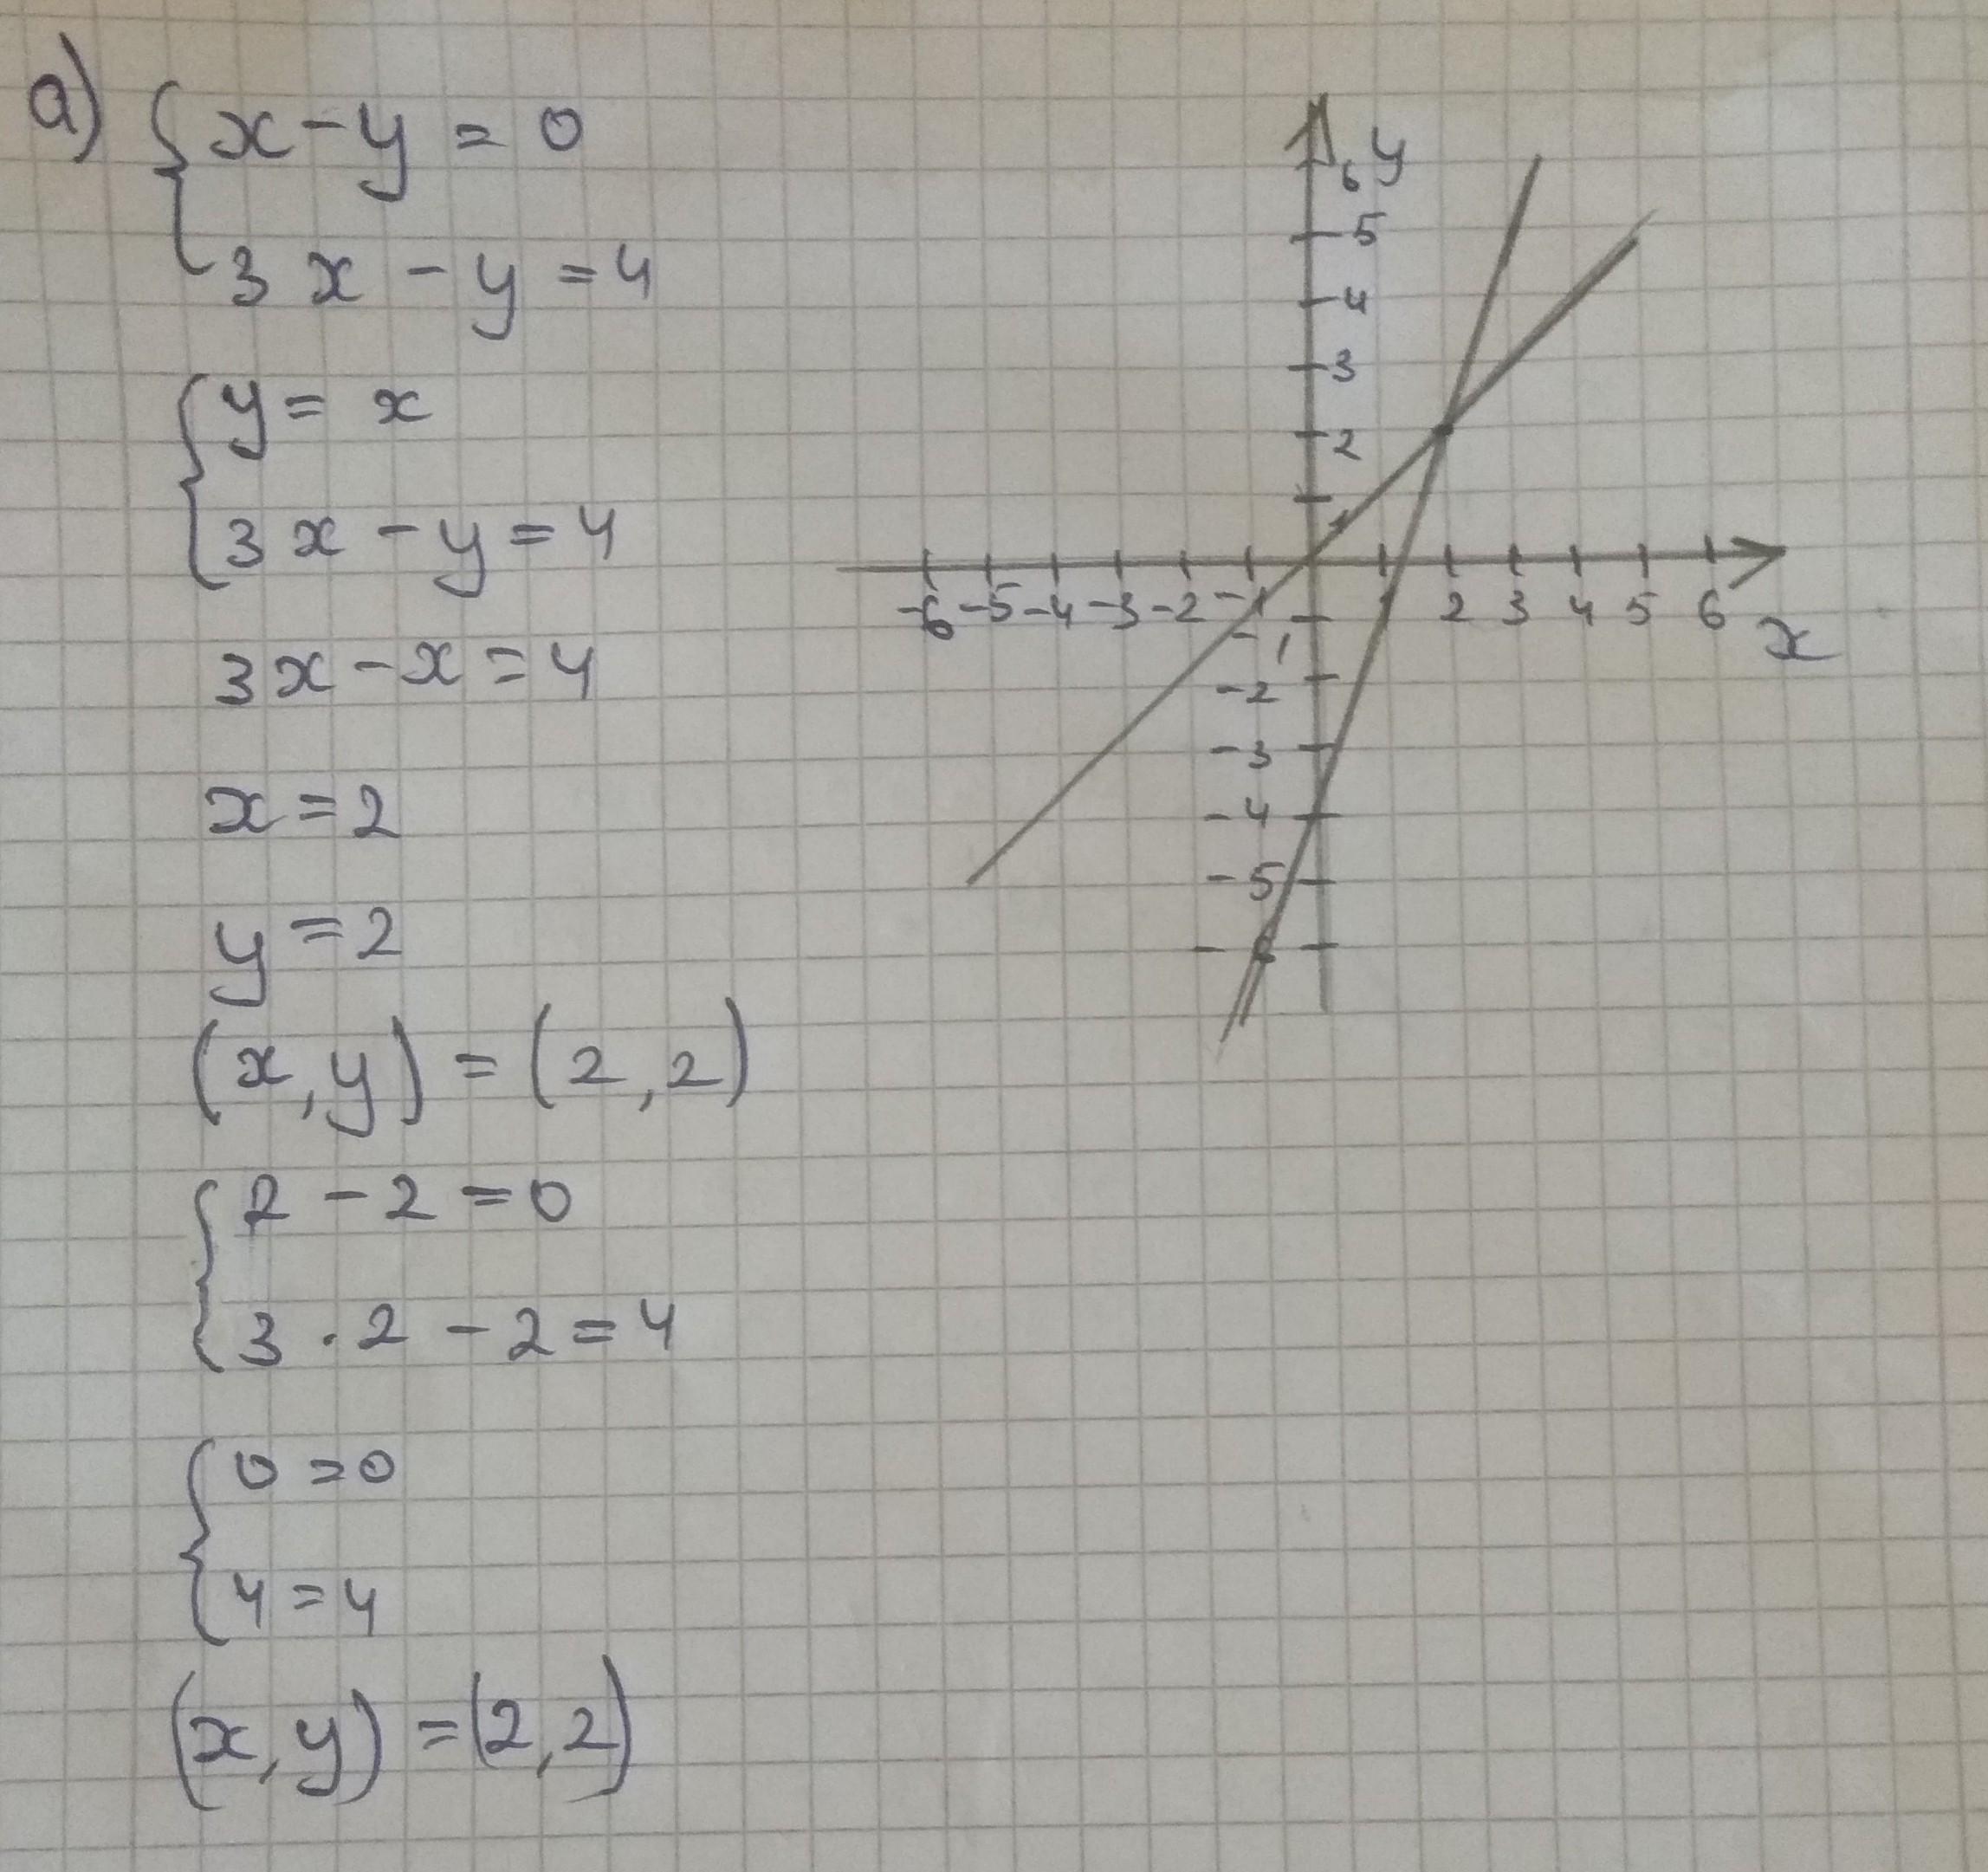 a) { x - y = 0
3x - y = 4
{ y = x
3x - y = 4
3x - x = 4
x = 2
y = 2
(x, y) = (2, 2)
{ 2 - 2 = 0
3 · 2 - 2 = 4
{ 0 = 0
4 = 4
(x, y) = (2, 2)
6 y
5
4
3
2
1
-6 -5 -4 -3 -2 -1 1 2 3 4 5 6 x
-1
-2
-3
-4
-5
-6